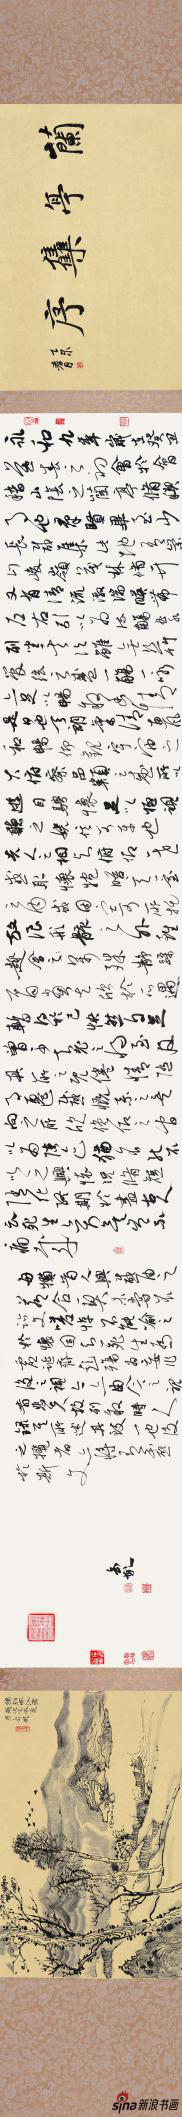 蘭亭集序
永和九年歲在癸丑
暮春之初會於會
稽山陰之蘭亭脩禊
事也羣賢畢至少
長咸集此地有崇
山峻嶺茂林脩竹
又有清流激湍映帶
左右引以為流觴曲水
列坐其次雖無絲竹
管弦之盛一觴一詠
亦足以暢敘幽情
是日也天朗氣清惠風
和暢仰觀宇宙之
大俯察品類之盛所以
遊目騁懷足以極視
聽之娛信可樂也
夫人之相與俯仰一世
或取諸懷抱悟言一室
之內或因寄所託
放浪形骸之外雖
趣舍萬殊靜躁
不同當其欣於所遇
暫得於己快然自足
曾不知老之將至及
其所之既倦情隨
事遷感慨係之矣
向之所欣俛仰之間
以為陳跡猶不能不
以之興懷況脩短
隨化終期於盡古人
云死生亦大矣豈不
痛哉
每攬昔人興感之由
若合一契未嘗不
臨文嗟悼不能喻之
於懷固知一死生為
虛誕齊彭殤為妄作
後之視今亦由今之視
昔悲夫故列敘時人
錄其所述其致一也後人
之攬者亦將有感
於斯文
sina新浪书画